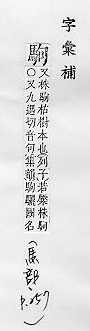 字彙補
駒
又株駒枯樹本也列子若橛株駒
○又九遇切音句集韻駒驪國名
(馬部,